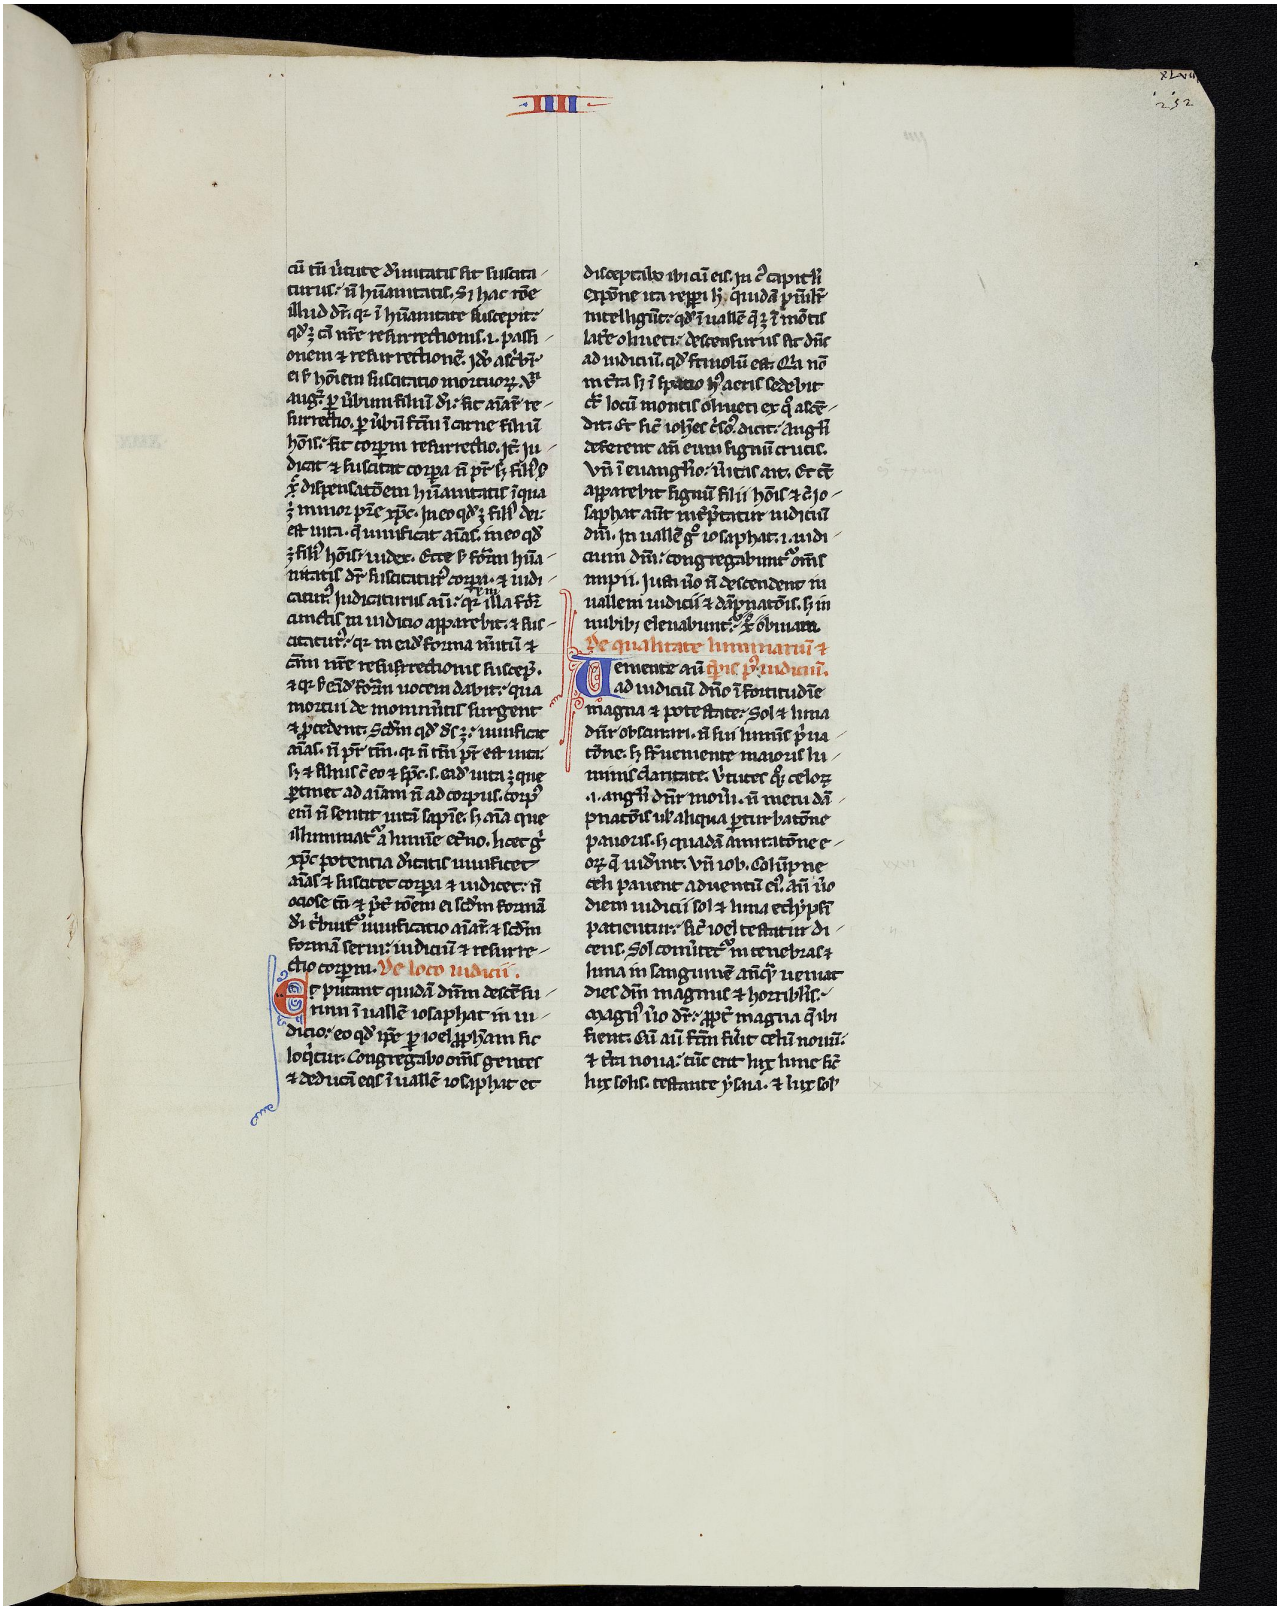 XLVIII
252
IIII
cũ tñ ũtute diuinitatis sit suscita-
turus: ñ hũanitatis. Si hac rõne
illud dr̃. qr ĩ hũanitate suscepit:
qd̾ ꝫ cã nr̃e resurrectionis .i. passi-
onem ⁊ resurrectionẽ. Ido asc̾bit̃
ei ẜ hõiem suscitatio mortuoꝝ. Vñ
aug̾. ꝑ ũbum filiũ di: fit aĩaꝝ re-
surrectio. ꝑ ũbũ fc̃m ĩ carne filiũ
hõis: fit corꝑm resurrectio. Itẽ iu-
dicat ⁊ suscitat corꝑa ñ pr̃ sꝫ filiꝰ ẜ
dispensatõem hũanitatis ĩ qua
ꝫ minor pr̃e xp̃c. In eo qd̾ ꝫ filiꝰ dei:
est uita. q̃ uiuificat aĩas. in eo qd̾
ꝫ filiꝰ hõis: iudex. Ecce ẜ formã hũa-
nitatis dr̃ suscitaturꝰ corꝑa. ⁊ iudi-
caturꝰ. Iudicaturus aũ: qr illa for̃
cunctis in iudicio apparebit. ⁊ sus-
citaturꝰ: qr in ead̾ forma m̃itũ ⁊
cãm nr̃e resurrectionis suscep̃.
⁊ qr ẜ eãd̾ formã uocem dabit: qua
mortui de monum̃tis surgent
⁊ ꝓcedent. Scd̃m qd̾ ds̃ ꝫ: uiuificat
aĩas. ñ pr̃ tm̃. qr ñ tm̃ pr̃ est uita:
sꝫ ⁊ filius c̃ eo ⁊ sp̃c. s. ead̾ uita ꝫ que
ꝑtinet ad aĩam ñ ad corpus. corpꝰ
eni ñ sentit uitã sapĩe. sꝫ aĩa que
illuminat̾ a lumĩe et̾no. licet g̾
xp̃c potencia diĩtatis uiuificet
aĩas ⁊ suscitet corꝑa ⁊ iudicet: ñ
ociose tñ ⁊ p̃t rõem ei scd̃m formã
di t̾buit̾ uiuificatio aĩaꝝ. ⁊ scd̃m
formã serui: iudiciũ ⁊ resurre-
ctio corꝑm. De loco iudicii.
Et putant quidã dñm descẽsu-
rum ĩ uallẽ iosaphat in iu-
dicio: eo qd̾ ip̃e ꝑ ioel ꝓpħam sic
loq̾tur. Congregabo om̃s gentes
⁊ deducã eas ĩ uallẽ iosaphat et
disceptabo ibi cũ eis. In cꝰ capit̾li
expõne ita repperi. hͦ quidã pũilr̃
intelligũt: qd̾ ĩ ualle q̃ ꝫ ĩ montis
lat̾e oliueti: descensurus sit dñs
ad iudiciũ. qd̾ friuolũ est. Q̾a nõ
in t̾ra sꝫ ĩ spacio hꝰ aeris sedebit
ct̾ locũ montis oliueti ex qͦ ascẽ-
dit. Et sic̃ ioħes c̾sos̾. dicit. Angl̾i
deferent añ eum signũ crucis.
Vñ ĩ euangl̾io: ũitas ait. Et tc̃
apparebit signũ filii hõis ⁊ c̃. Io-
saphat aũt int̾p̃tatur iudiciũ
dñi. In uallẽ g̾ iosaphat .i. iudi-
cium dñi: congregabunt̾ om̃s
impii. Iusti ũo ñ descendent in
uallem iudicii ⁊ dãpnatõis. sꝫ in
nubibꝫ eleuabunt̾. xͦ obuiam.
De qualitate luminariũ ⁊
Veniente aũ tp̃is pꝰ iudiciũ.
ad iudiciũ dño ĩ fortitudĩe
magna ⁊ potestate: Sol ⁊ luna
dñr obscurari. ñ sui lumĩs p̾ua-
tõne. sꝫ sup̾ueniente maioris lu-
minis claritate. Ũtutes q̾ꝫ celoꝝ
.i. angl̾i dñr moũi. ñ metu dã-
pnatõis ul̾ aliqua ꝑturbatõne
pauoris. sꝫ quadã amiratõne e-
oꝝ q̃ uid̾int. Vñ iob. Colũpne
celi pauent aduentũ eiꝰ. Añ ũo
diem iudicii sol ⁊ luna eclypsĩ
patientur: sic̃ ioel testatur di-
cens. Sol conũtet̾ in tenebras ⁊
luna in sanguinẽ anq̾ ueniat
dies dñi magnus ⁊ horribilis:
Magnꝰ ũo dr̃: ꝓpt̾ magna q̃ ibi
fient. Cũ aũ fc̃m fũit celũ nouũ.
⁊ t̾ra noua: tũc erit lux lune sic̃
lux solis. testante ysaia. ⁊ lux sol̾